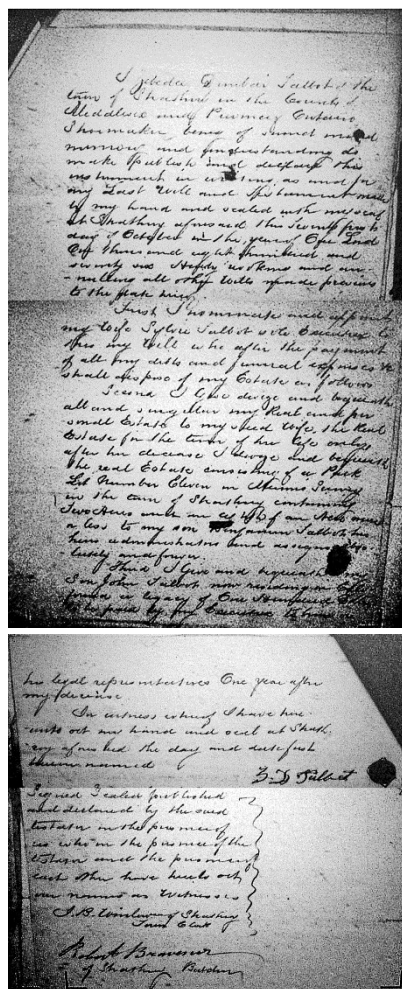 I Zebedee Dunbar Talbot of the
town of Strathroy in the County of
Middlesex and Province Ontario
Shoemaker being of sound mind
memory and understanding do
make publish and declare this
instrument in writing as and for
my Last Will and Testament made
by my hand and sealed with my seal
at Strathroy aforesaid this
day of October in the year of Our Lord
One thousand eight hundred and
seventy six Hereby revoking and an-
-nulling all other Wills made previous
to the date hereof
First I nominate and appoint
my Wife Sylvia Talbot sole Executrix to
this my Will who after the payment
of all my debts and funeral expenses &c
shall dispose of my Estate as follows
Second I Give devise and bequeath
all and singular my Real and per
sonal Estate to my said Wife, the Real
Estate for the term of her life only
after her decease I devise and bequeath
the real Estate consisting of a Park
Lot Number Eleven in Survey
in the town of Strathroy containing
Two Acres and an of an Acre more
or less to my son Benjamin Talbot his
heirs administrators and assigns
and forever
Third I Give and bequeath to my
Son John Talbot now residing in
a legacy of One Hundred
to be paid by my Executrix to him
his legal representatives One year after
my decease
In witness whereof I have here
-unto set my hand and seal at Strath
-roy aforesaid the day and date first
above named
Z. D Talbot
Signed Sealed published
and declared by the said
testator in the presence of
us who in the presence of the
testator and the presence of
each other have hereto set
our names as Witnesses
of Strathroy
Town Clerk
Robert
of Strathroy Butcher